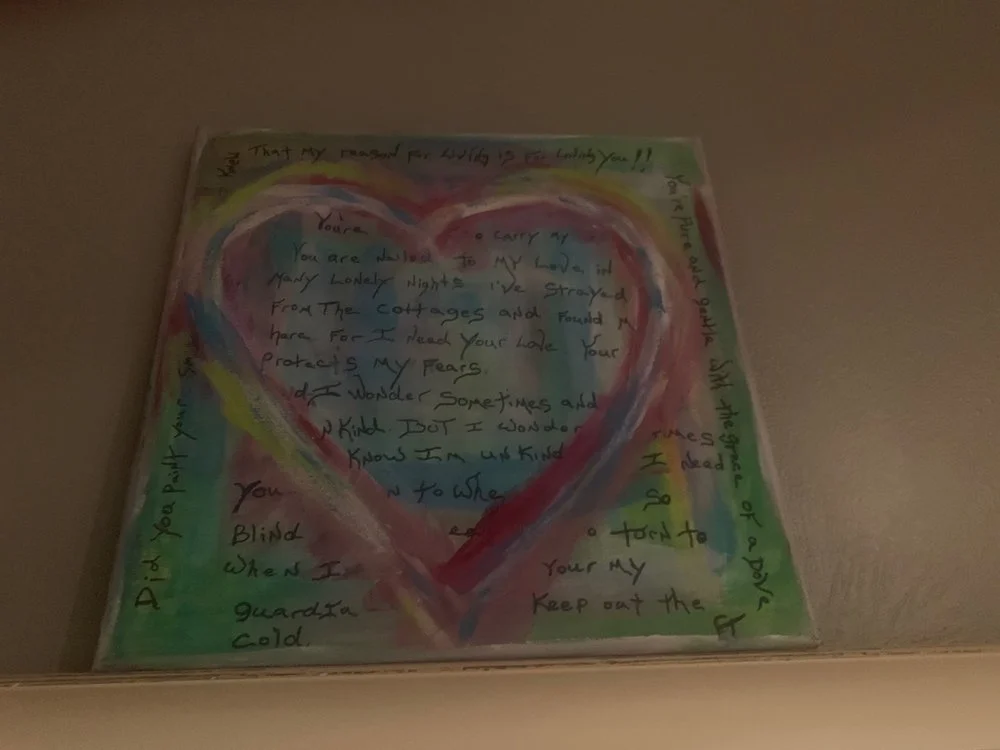 That My reason For Living is For Loving You!!
You're Pure and gentle with the grace of a Dove
Did You Paint Your
You're o carry My
You are Nailed To My Love in
Many Lonely Nights I've Strayed
From The cottages and Found M
here For I Need Your Love Your
Protects My Fears.
d I wonder Sometimes and
N Kind. BUT I wonder
Know I'm unKind
rimes
You N to Whe
I Need
Blind o torn to
When I Your My
guardia Keep out the
Cold.